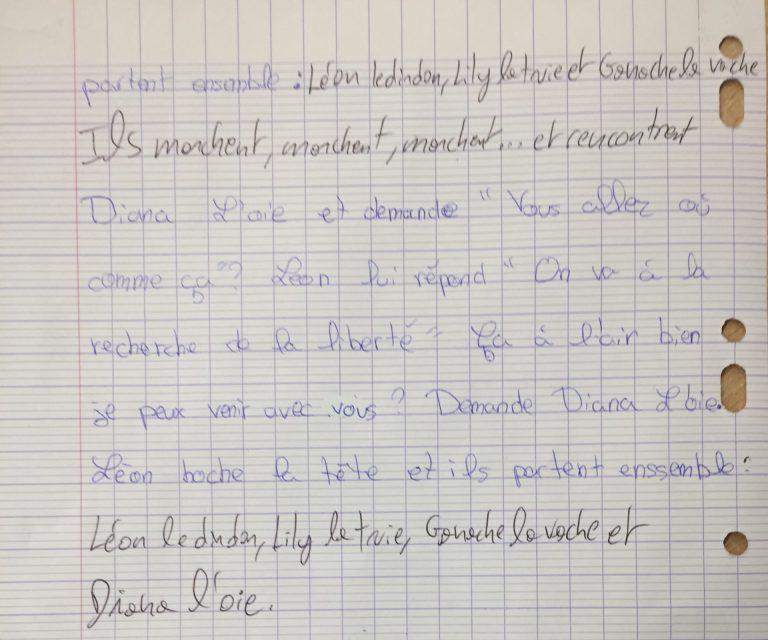 partent ensemble : Léon le dindon, Lily la truie et Ganache la vache
Ils marchent, marchent, marchent... et rencontrent
Diana L'oie et demande " Vous allez où
comme ça"? Léon lui répend " On va à la
recherche de la liberté" ça à l'air bien
je peux venir avec vous? Demande Diana L'oie.
Léon hoche la tête et ils partent enssemble:
Léon le dindon, Lily la truie, Ganache la vache et
Diana l'oie.